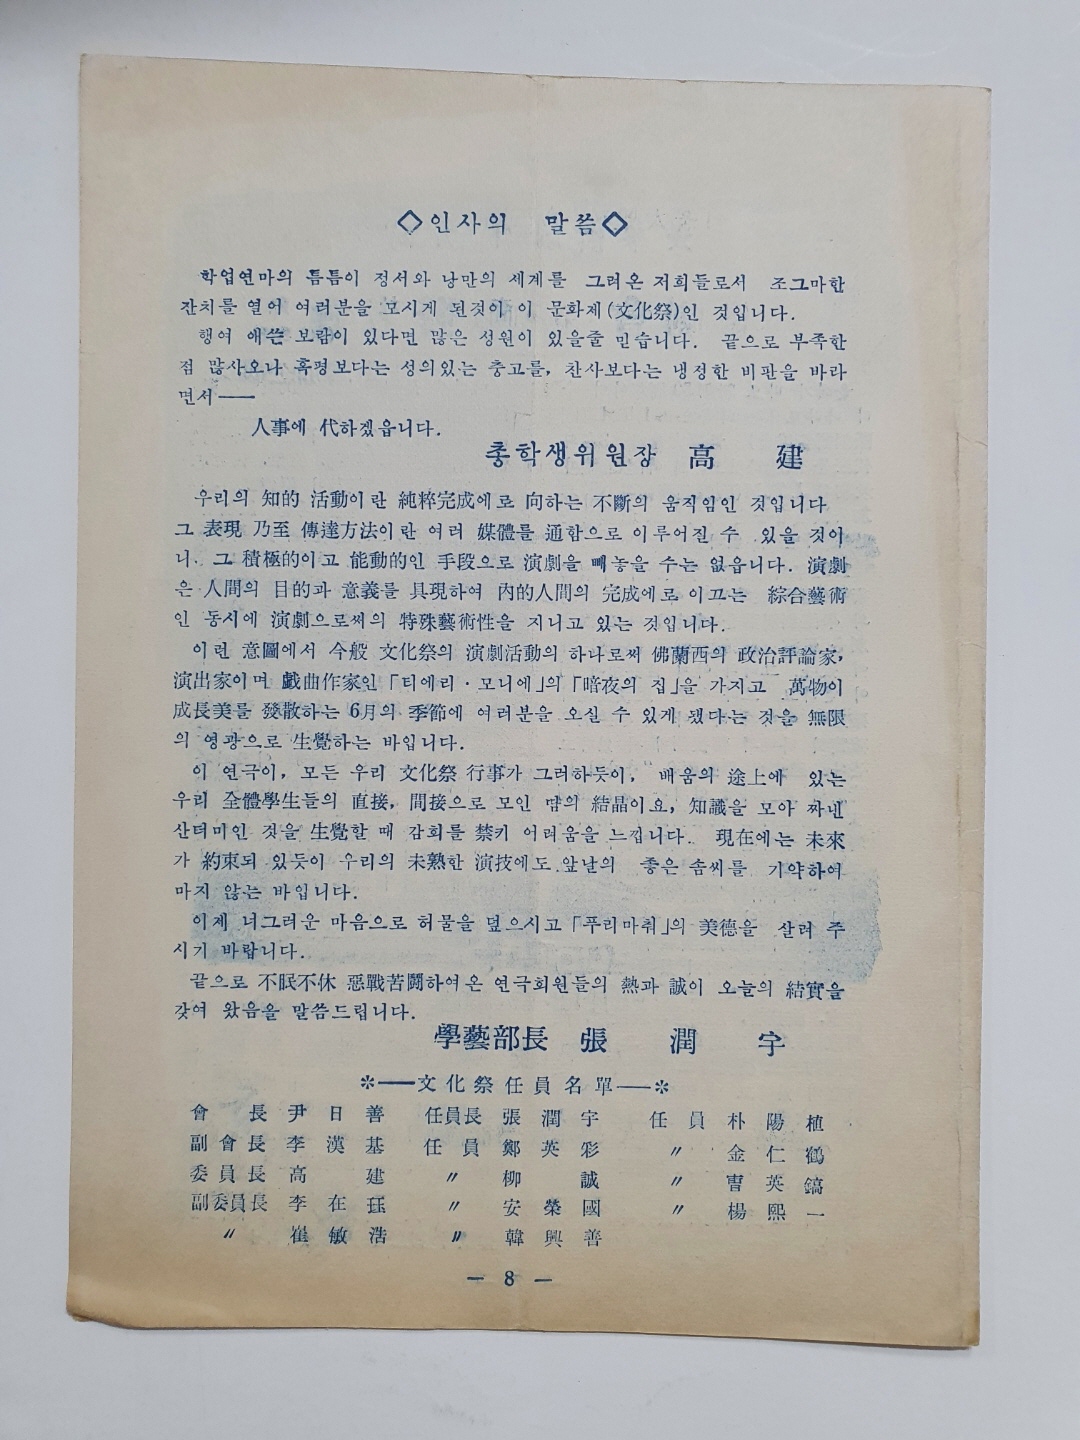 ◇인사의 말씀◇
학업연마의 틈틈이 정서와 낭만의 세계를 그려온 저희들로서 조그마한
잔치를 열어 여러분을 모시게 된것이 이 문화제(文化祭)인 것입니다.
행여 애쓴 보람이 있다면 많은 성원이 있을줄 믿습니다. 끝으로 부족한
점 많사오나 혹평보다는 성의있는 충고를, 찬사보다는 냉정한 비판을 바라
면서——
人事에 代하겠읍니다.
총학생위원장 高 建
우리의 知的 活動이란 純粹完成에로 向하는 不斷의 움직임인 것입니다
그 表現 乃至 傳達方法이란 여러 媒體를 通함으로 이루어질 수 있을 것이
니. 그 積極的이고 能動的인 手段으로 演劇을 빼놓을 수는 없읍니다. 演劇
은 人間의 目的과 意義를 具現하여 內的人間의 完成에로 이끄는 綜合藝術
인 동시에 演劇으로써의 特殊藝術性을 지니고 있는 것입니다.
이런 意圖에서 今般 文化祭의 演劇活動의 하나로써 佛蘭西의 政治評論家,
演出家이며 戱曲作家인 「티에리·모니에」의 「暗夜의 집」을 가지고 萬物이
成長美를 發散하는 6月의 季節에 여러분을 모실 수 있게 됐다는 것을 無限
의 영광으로 生覺하는 바입니다.
이 연극이, 모든 우리 文化祭 行事가 그러하듯이, 배움의 途上에 있는
우리 全體學生들의 直接, 間接으로 모인 땀의 結晶이요, 知識을 모아 짜낸
산더미인 것을 生覺할 때 감회를 禁키 어려움을 느낍니다. 現在에는 未來
가 約束되 있듯이 우리의 未熟한 演技에도 앞날의 좋은 솜씨를 기약하여
마지 않는 바입니다.
이제 너그러운 마음으로 허물을 덮으시고 「푸리마취」의 美德을 살려 주
시기 바랍니다.
끝으로 不眠不休 惡戰苦鬪하여온 연극회원들의 熱과 誠이 오늘의 結實을
갖여 왔음을 말씀드립니다.
學藝部長 張 潤 宇
✻——文化祭任員名單——✻
會 長 尹日善 任員長 張潤宇 任 員 朴陽植
副會長 李漢基 任 員 鄭英彩 〃 金仁鶴
委員長 高 建 〃 柳 誠 〃 曺英鎬
副委員長 李在珏 〃 安榮國 〃 楊熙一
〃 崔敏浩 〃 韓興善
— 8 —